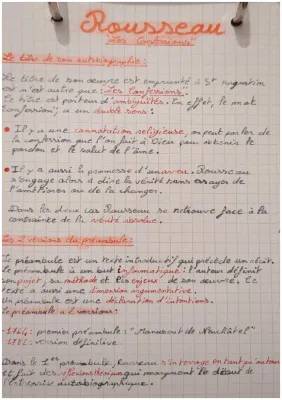 Rousseau
"Les Confessions"
Le titre de son autobiographie:
Le titre de son œuvre est emprunté à St Augustin
et n'est autre que: Les Confessions.
Le titre est porteur d'ambiguïtés. En effet, le mot
Confession, a un double sens:
• Il y a une connotation religieuse, on peut parler de
la confession que l'on fait à Dieu pour obtenir le
pardon et le salut de l'âme.
• Il y a aussi la promesse d'un aveu. Rousseau
s'engage alors à dire la vérité sans essayer de
l'améliorer ou de la changer.
Dans les deux cas Rousseau se retrouve face à la
contrainte de la vérité absolue.
Les 2 versions du préambule:
Le préambule est un texte introductif qui précède un récit.
Le préambule a un but informatique: l'auteur définit
son projet, sa méthode et les enjeux de son œuvre. Ce
texte a aussi une dimension argumentative.
Un préambule est une déclaration d'intentions.
Le préambule a 2 versions:
1764: premier préambule: "Manuscrit de Neuchâtel"
version définitive
Dans le 1er préambule, Rousseau s'interroge en tant qu'auteur
et fait des réflexions qui marquent le début de
l'entreprise autobiographique.